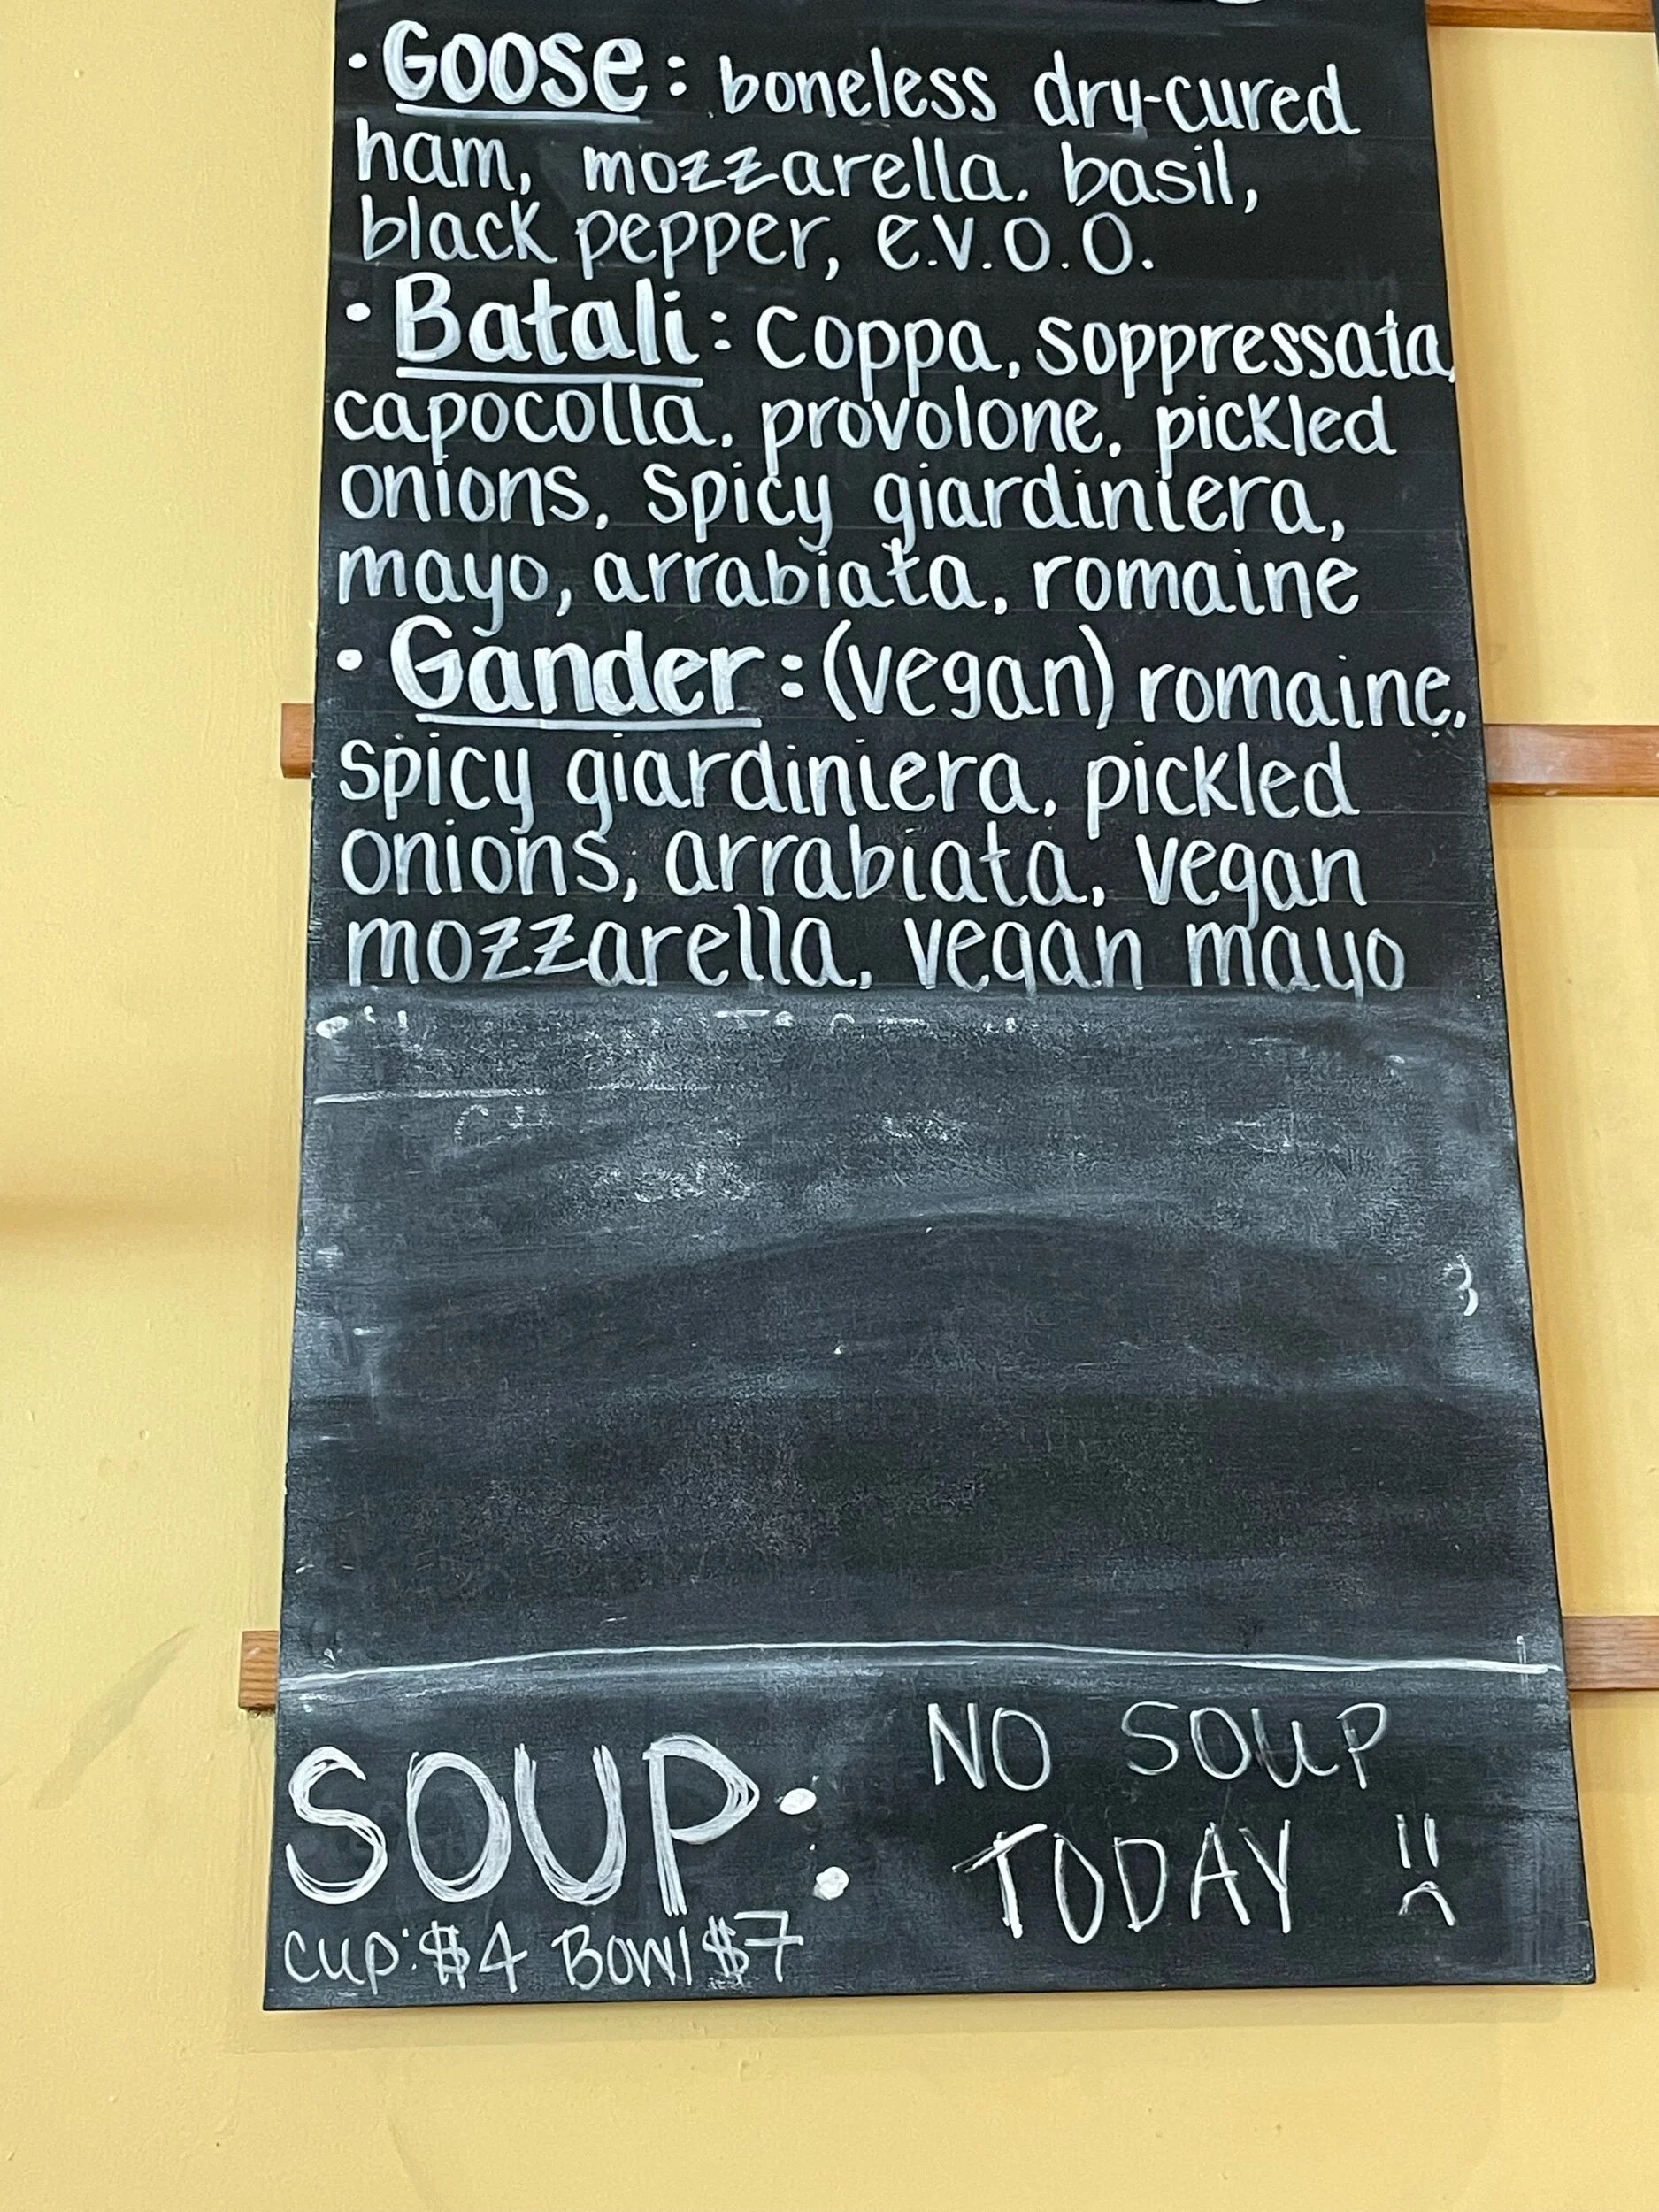 • Goose: boneless dry-cured
ham, mozzarella, basil,
black pepper, e.v.o.o.
• Batali: coppa, soppressata,
capocolla, provolone, pickled
onions, spicy giardiniera,
mayo, arrabiata, romaine
• Gander: (vegan) romaine,
spicy giardiniera, pickled
onions, arrabiata, vegan
mozzarella, vegan mayo
SOUP: NO SOUP
TODAY
cup: $4 Bowl $7